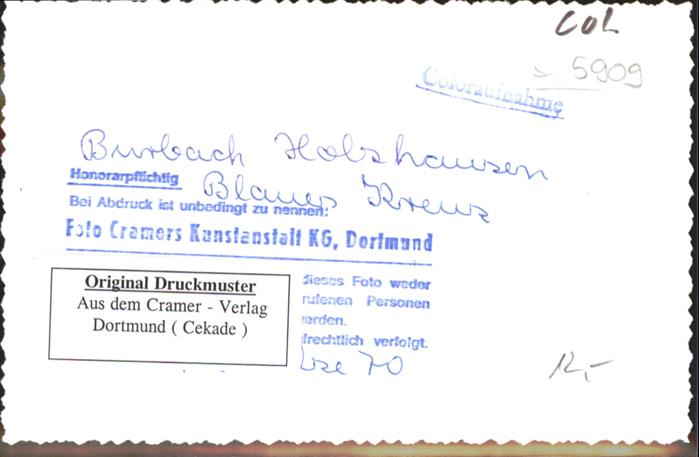 COL
5909
Coloraufnahme
Burbach Holzhausen
Honorarpflichtig
Blaues Kreuz
Bei Abdruck ist unbedingt zu nennen:
Foto Cramers Kunstanstalt KG, Dortmund
Original Druckmuster
Aus dem Cramer - Verlag
Dortmund ( Cekade )
dieses Foto weder
rufenen Personen
erden.
frechtlich verfolgt.
70
12,-